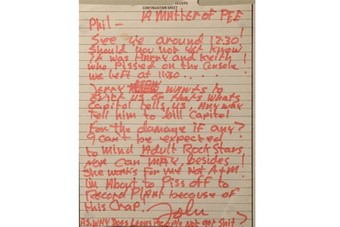 CONTINUATION SHEET
A Matter of PEE
Phil —
See you around 12:30!
Should you not yet know
it was Harry and Keith
who Pissed on the Console
we left at 11:30...!
Jerry now wants to
evict us or thats whats
Capitol tells us. Anyway
Tell him to bill Capitol
For the damage if any?
I cant be expected
to mind Adult Rock Stars
nor can MAY, besides!
she works for me not A+M!
Im About to Piss off to
Record Plant because of
this Crap!
John